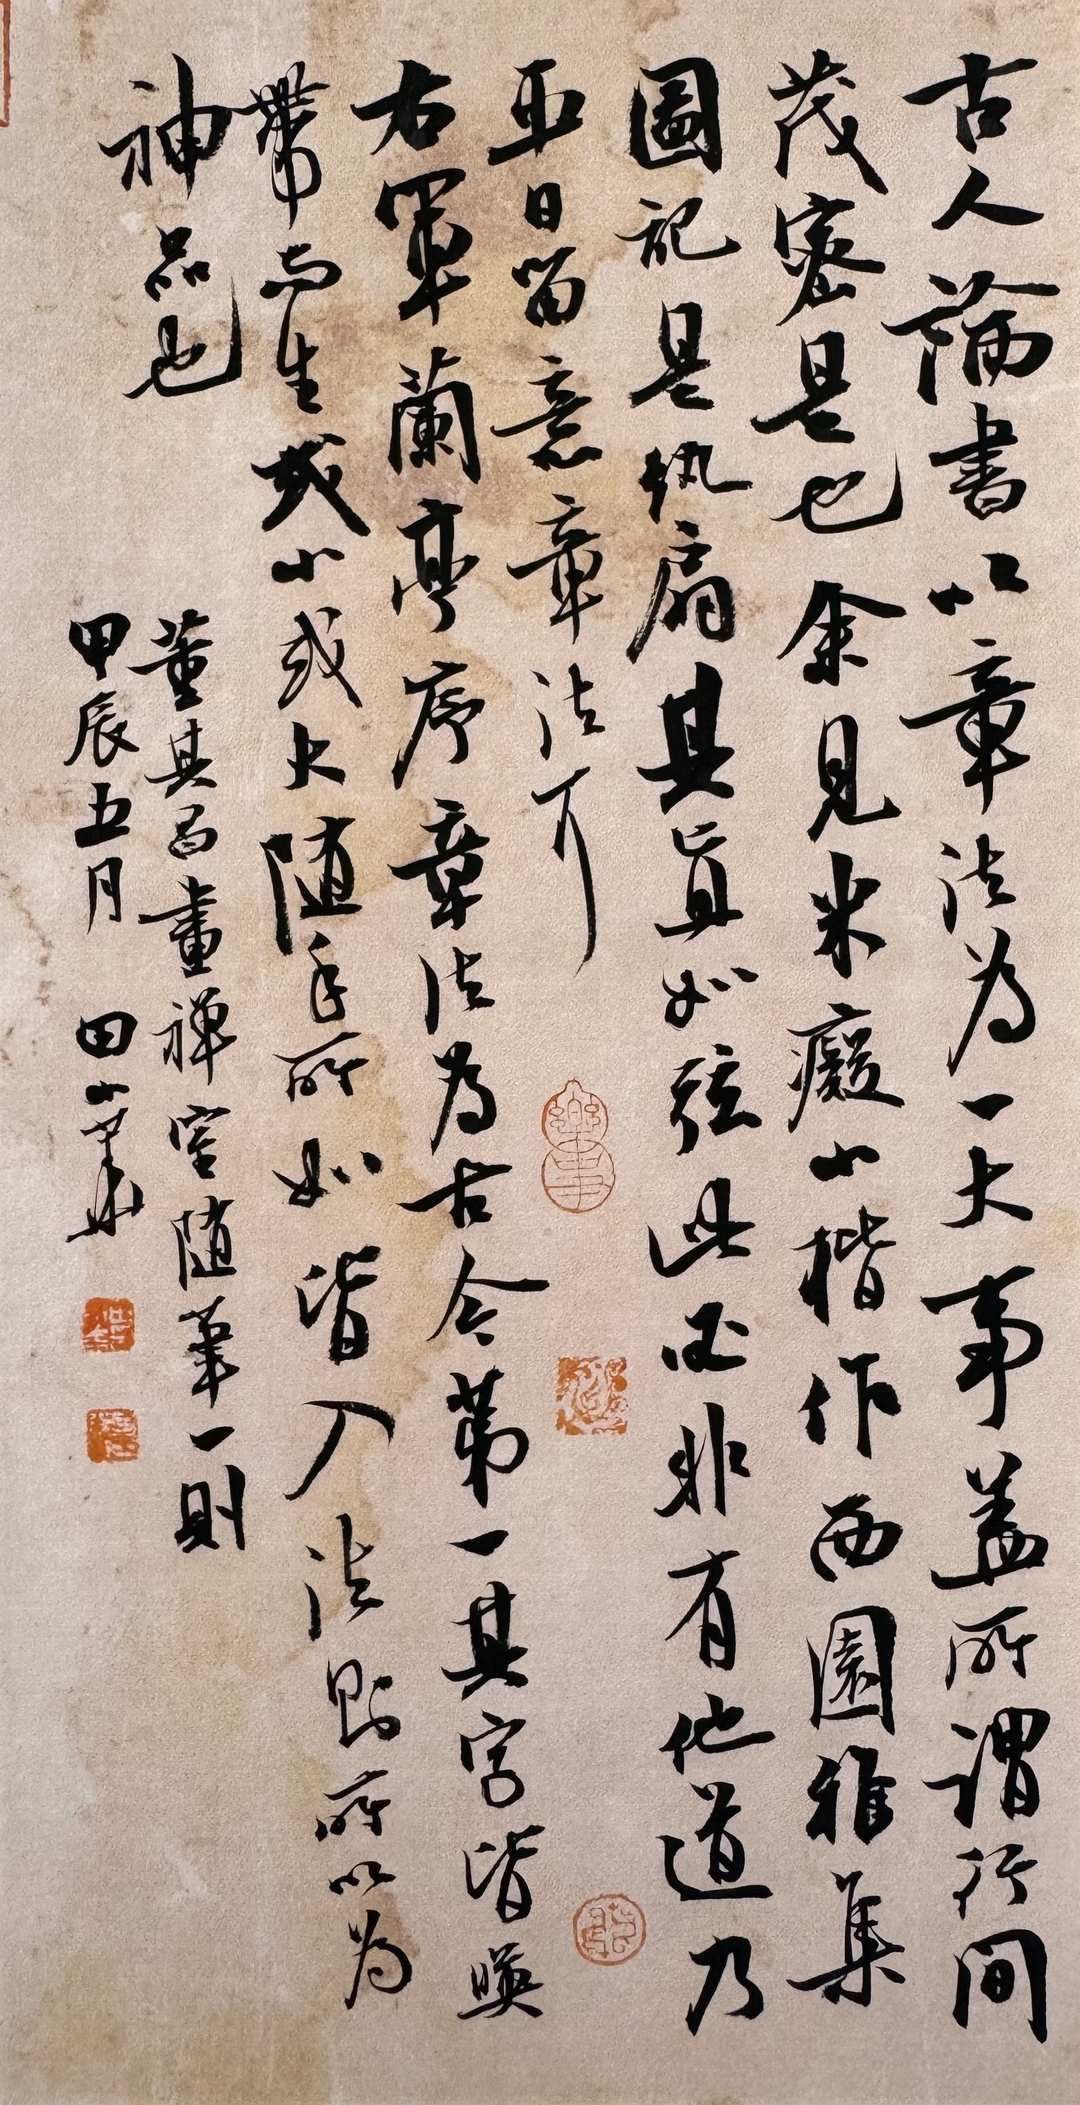 古人論書以章法為一大事盖所謂行間
茂密是也余見米癡小楷作西園雅集
圖記是紈扇其直如弦此必非有他道乃
平日留意章法耳
右軍蘭亭序章法為古今第一其字皆暎
帶而生或小或大随手所如皆入法則所以為
神品也
董其昌畫禅室随筆一則
甲辰五月 田小華